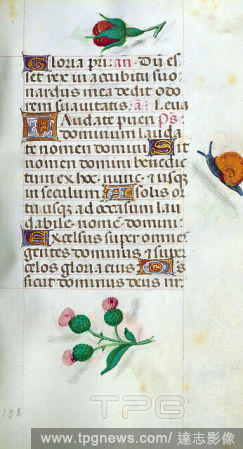 Gloria pri: an. Dū es
set rex in accubitu suo
nardus mea dedit odo
rem suavitatis. a. Leva
Laudate pueri Ps:
dominum lauda
te nomen domini. Sit
nomen domini benedic
tum ex hoc nunc: et usque
in seculum. A solis or
tu usque ad occasum lau
dabile nome domini.
Excelsus super omnes
gentes dominus et super
celos gloria eius. Quis
sicut dominus deus nr.
108
TPG
www.tpgnews.com/達志影像